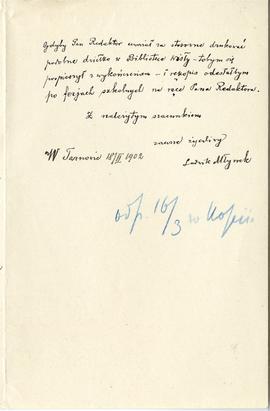 Gdyby Pan Redaktor uważał za stosowne drukować
podobne dziełko w Bibliotece Wisły – tobym się
pospieszył z wykończeniem – i rękopis odesłałbym
po feryach szkolnych na ręce Pana Redaktora.
Z należytym szacunkiem
zawsze życzliwy
W Tarnowie 18/II 1902
Ludwik Młynek
odp. 16/3 w